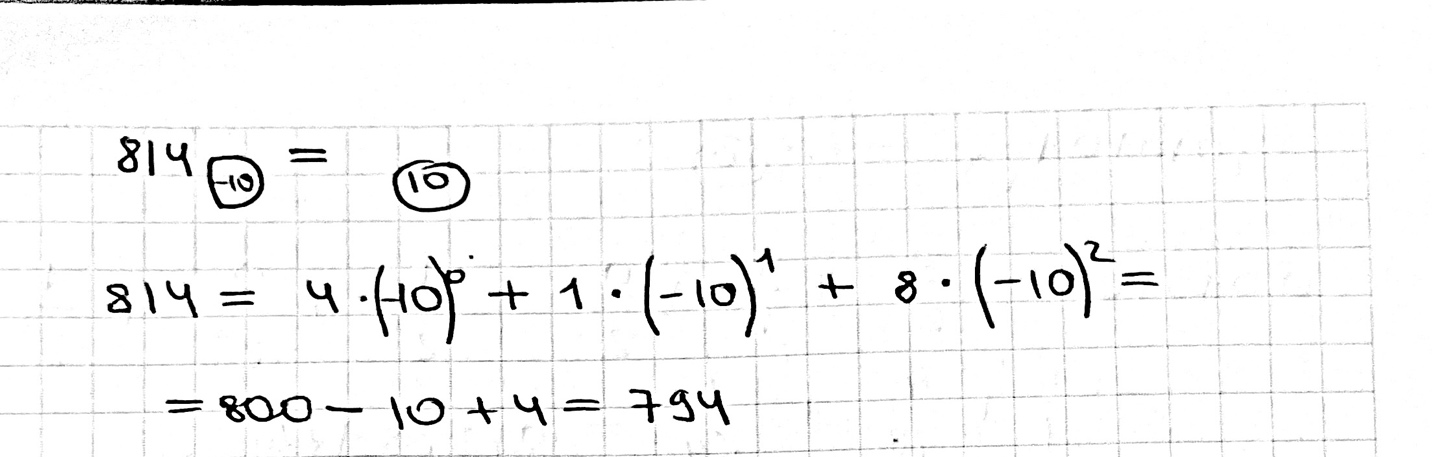 814 (-10) = (10)
814 = 4 · (-10)⁰ + 1 · (-10)¹ + 8 · (-10)² =
= 800 - 10 + 4 = 794